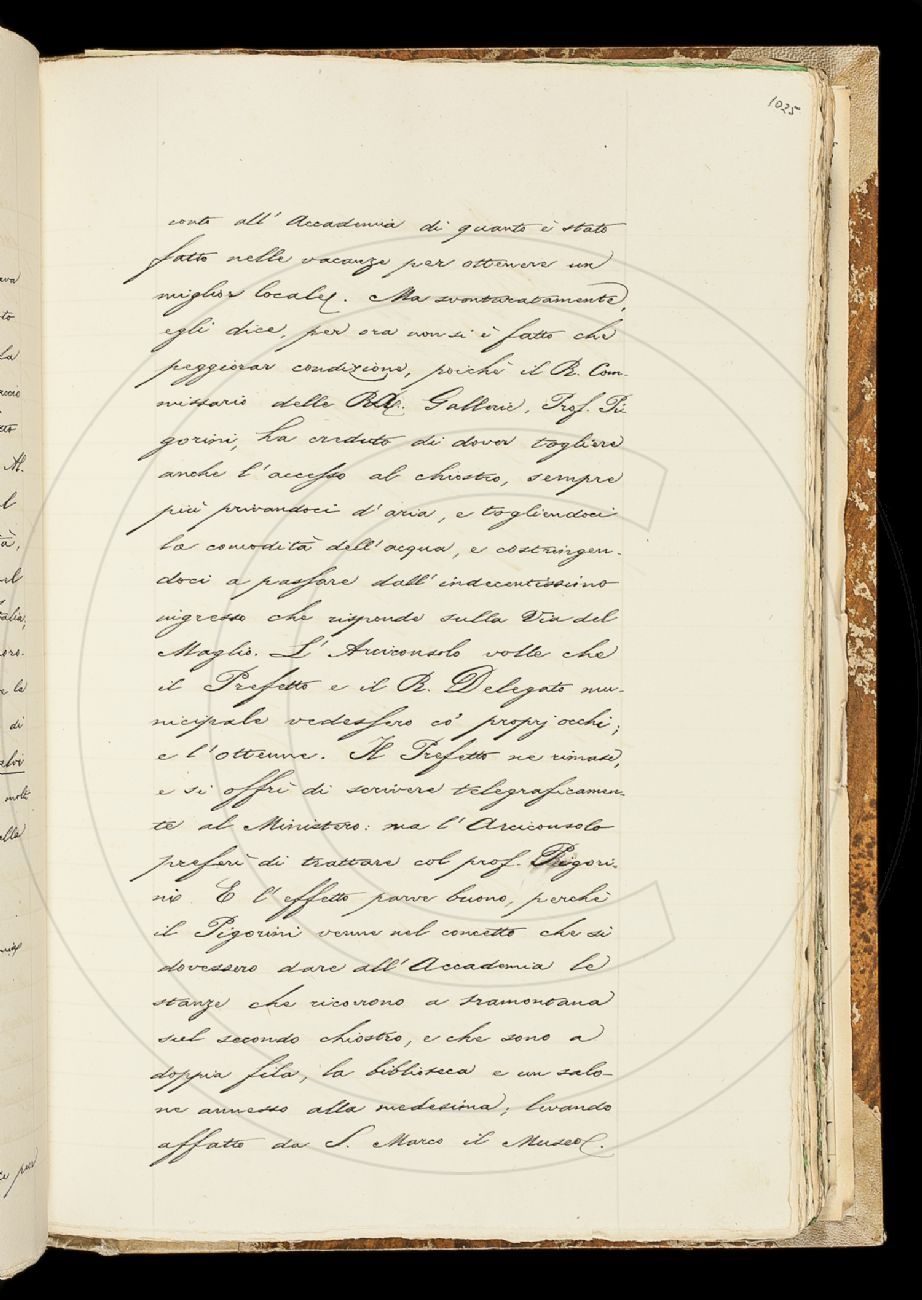 1025
conto all' Accademia di quanto è stato
fatto nelle vacanze per ottenere un
miglior locale. Ma sventuratamente,
egli dice, per ora non si è fatto che
peggiorar condizione, poichè il R. Com-
missario delle RR. Gallerie, Prof. Pi
gorini, ha creduto di dover togliere
anche l'accesso al chiostro, sempre
più privandoci d'aria, e togliendoci
la comodità dell'acqua, e costringen-
doci a passare dall'indecentissimo
ingresso che risponde sulla Via del
Maglio. L'Arciconsolo volle che
il Prefetto e il R. Delegato mu-
nicipale vedessero co' proprj occhi;
e l'ottenne. Il Prefetto ne rimase,
e si offrì di scrivere telegraficamen-
te al Ministero: ma l'Arciconsolo
preferì di trattare col prof. Pigori-
ni. E l'effetto parve buono, perchè
il Pigorini venne nel concetto che si
dovessero dare all'Accademia le
stanze che ricorrono a tramontana
sul secondo chiostro, e che sono a
doppia fila, la biblioteca e un salo-
ne annesso alla medesima; levando
affatto da S. Marco il Museo.